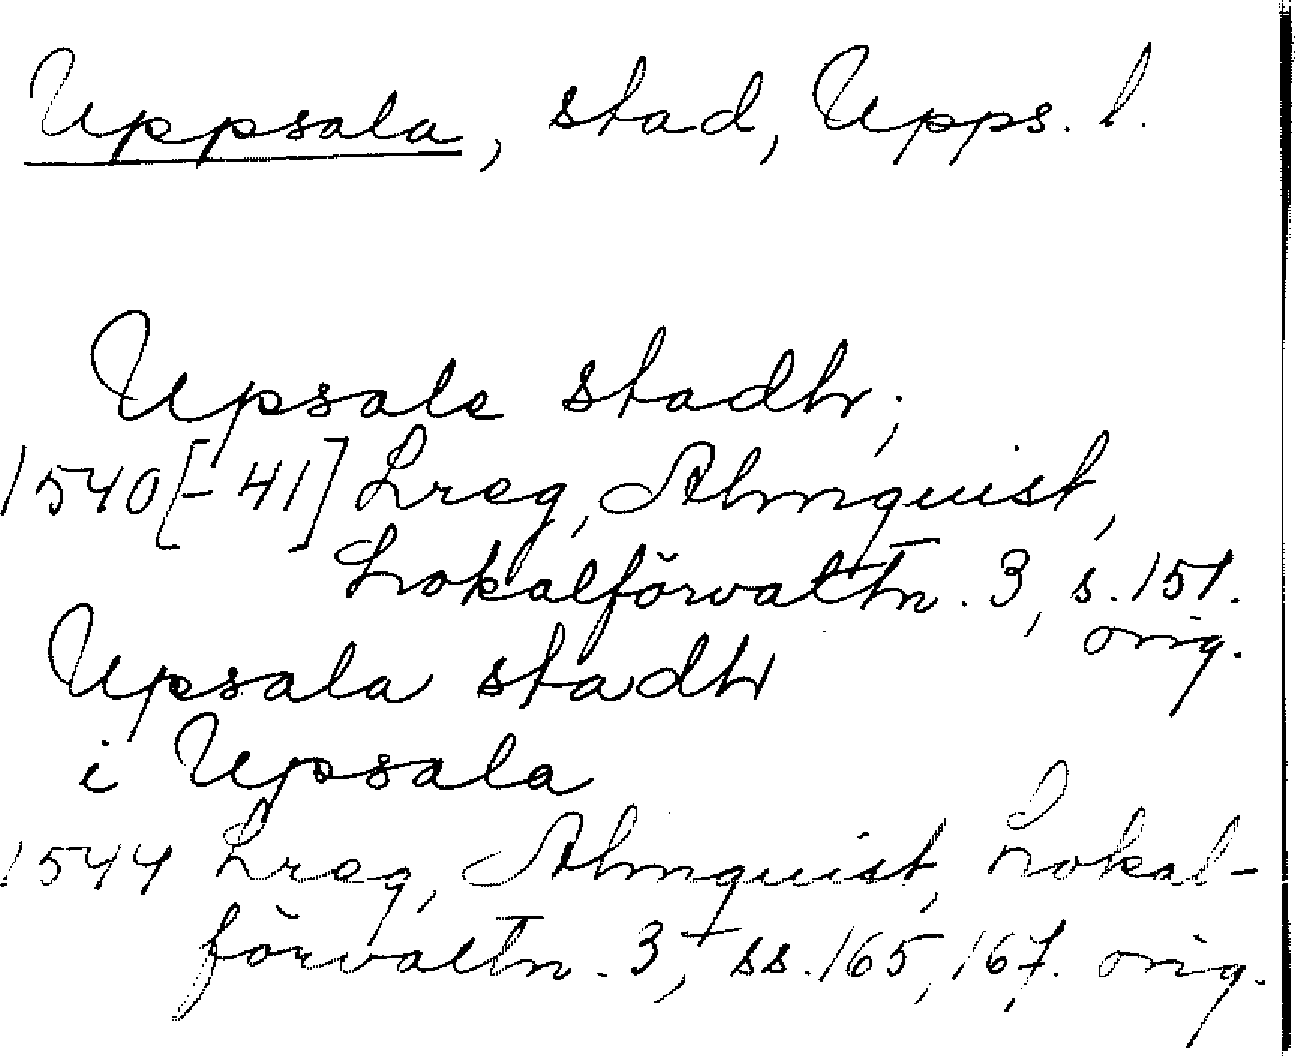 Uppsala, stad, Upps. l.
Upsale stadh;
1540[-41] Lreg, Almquist,
Lokalförvaltn. 3, s. 151.
orig.
Upsala stadh
i Upsala
1544 Lreg, Almquist, Lokal-
förvaltn. 3, ss. 165, 167. orig.